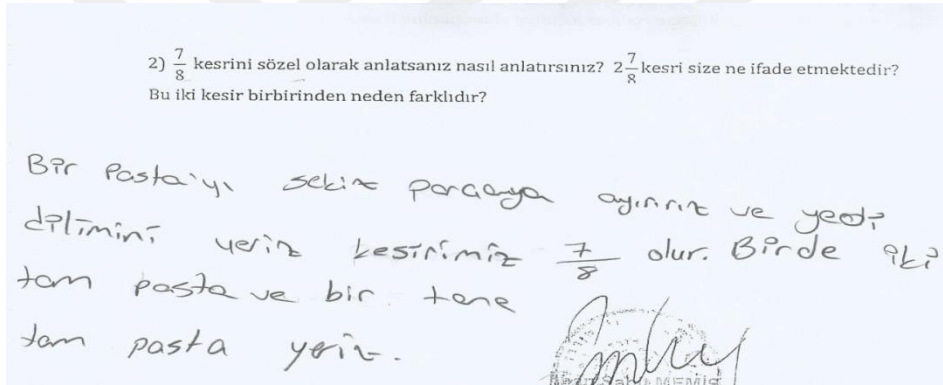 2) 7/8 kesrini sözel olarak anlatsanız nasıl anlatırsınız? 2 7/8 kesri size ne ifade etmektedir?
Bu iki kesir birbirinden neden farklıdır?
Bir Pasta'yı sekiz parçaya ayırırız ve yedi
dilimini yeriz kesirimiz 7/8 olur. Birde iki
tam pasta ve bir tane
tam pasta yeriz.
MEMİŞ